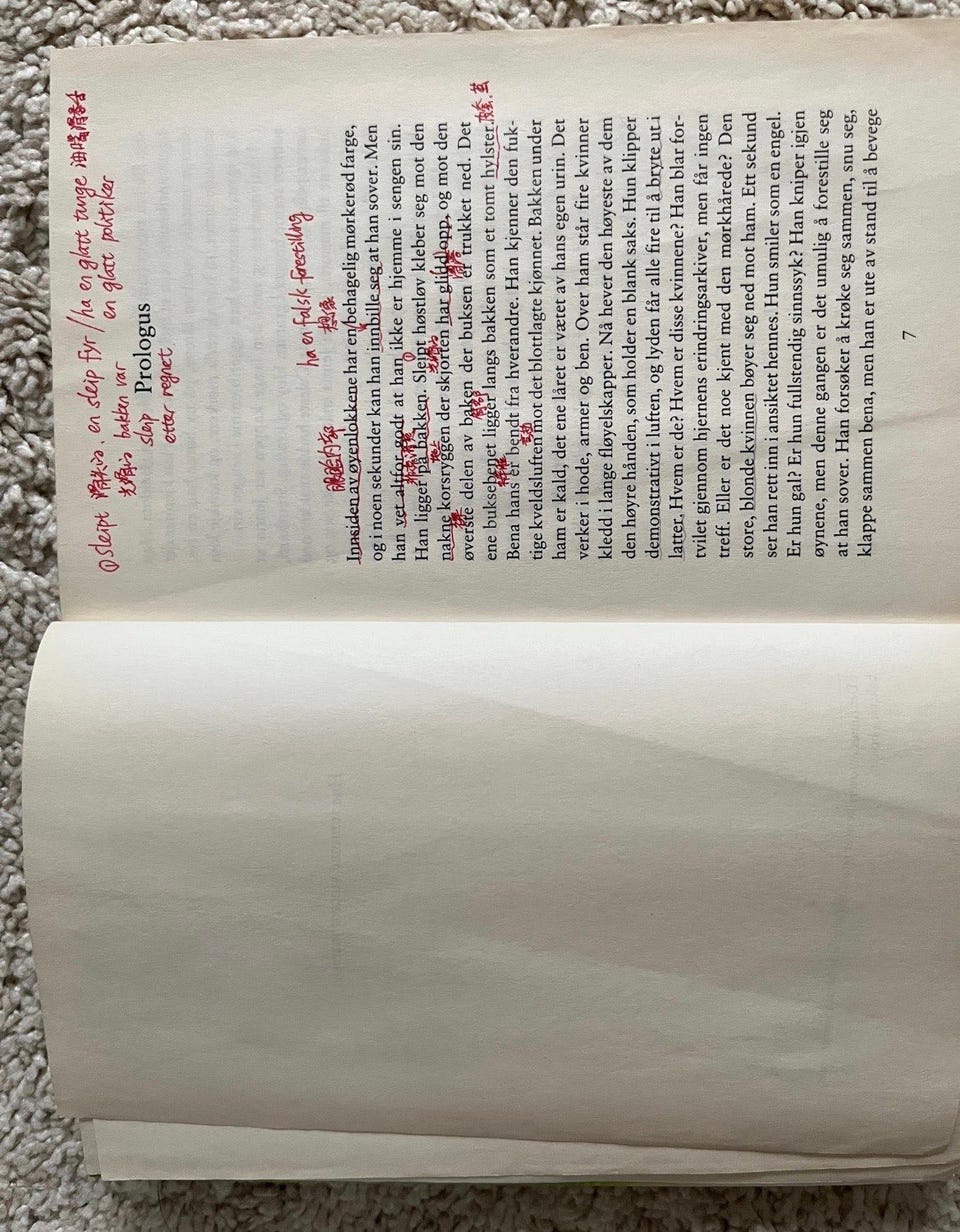 ①sleipt 滑头的. en sleip fyr / ha en glatt tunge 油嘴滑舌
光滑的 bakken var en glatt politiker
sleip
etter regnet
Prologus
ha en falsk forestilling
想象
Innsiden av øyenlokkene har en behagelig mørkerød farge,
og i noen sekunder kan han innbille seg at han sover. Men
han vet altfor godt at han ikke er hjemme i sengen sin.
Han ligger på bakken. Sleipt høstløv kleber seg mot den
地上 光滑的
nakne korsryggen der skjorten har glidd opp, og mot den
裸
øverste delen av baken der buksen er trukket ned. Det
ene buksebenet ligger langs bakken som et tomt hylster.
Bena hans er bendt fra hverandre. Han kjenner den fuk-
tige kveldsluften mot det blottlagte kjønnet. Bakken under
ham er kald, det ene låret er vætet av hans egen urin. Det
verker i hode, armer og ben. Over ham står fire kvinner
kledd i lange fløyelskapper. Nå hever den høyeste av dem
den høyre hånden, som holder en blank saks. Hun klipper
demonstrativt i luften, og lyden får alle fire til å bryte ut i
latter. Hvem er de? Hvem er disse kvinnene? Han blar for-
tvilet gjennom hjernens erindringsarkiver, men får ingen
treff. Eller er det noe kjent med den mørkhårede? Den
store, blonde kvinnen bøyer seg ned mot ham. Ett sekund
ser han rett inn i ansiktet hennes. Hun smiler som en engel.
Er hun gal? Er hun fullstendig sinnssyk? Han kniper igjen
øynene, men denne gangen er det umulig å forestille seg
at han sover. Han forsøker å krøke seg sammen, snu seg,
klappe sammen bena, men han er ute av stand til å bevege
7